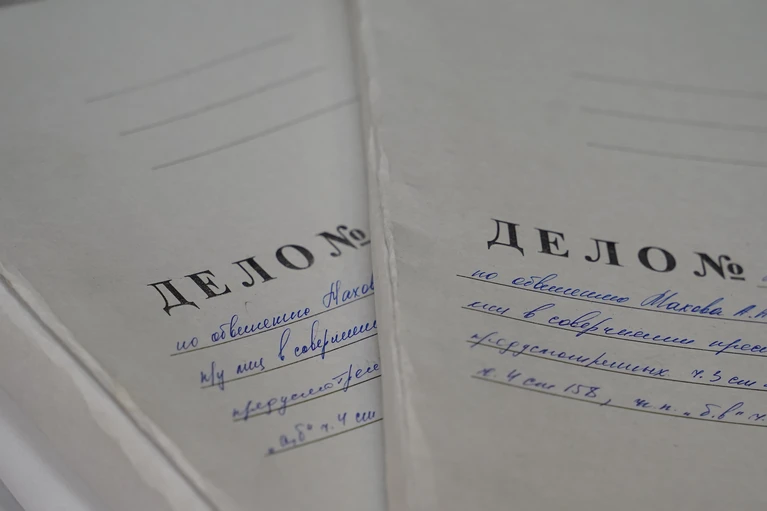 ДЕЛО №
по обвинению Махов
п/у лиц в совершени
предусмотрен
„а,б“ ч. 4 ст
ДЕЛО №
по обвинению Махова А.А
лиц в совершении прес
предусмотренных ч. 3 ст.
ч. 4 ст 158, ч. п. „б.в“ ч.